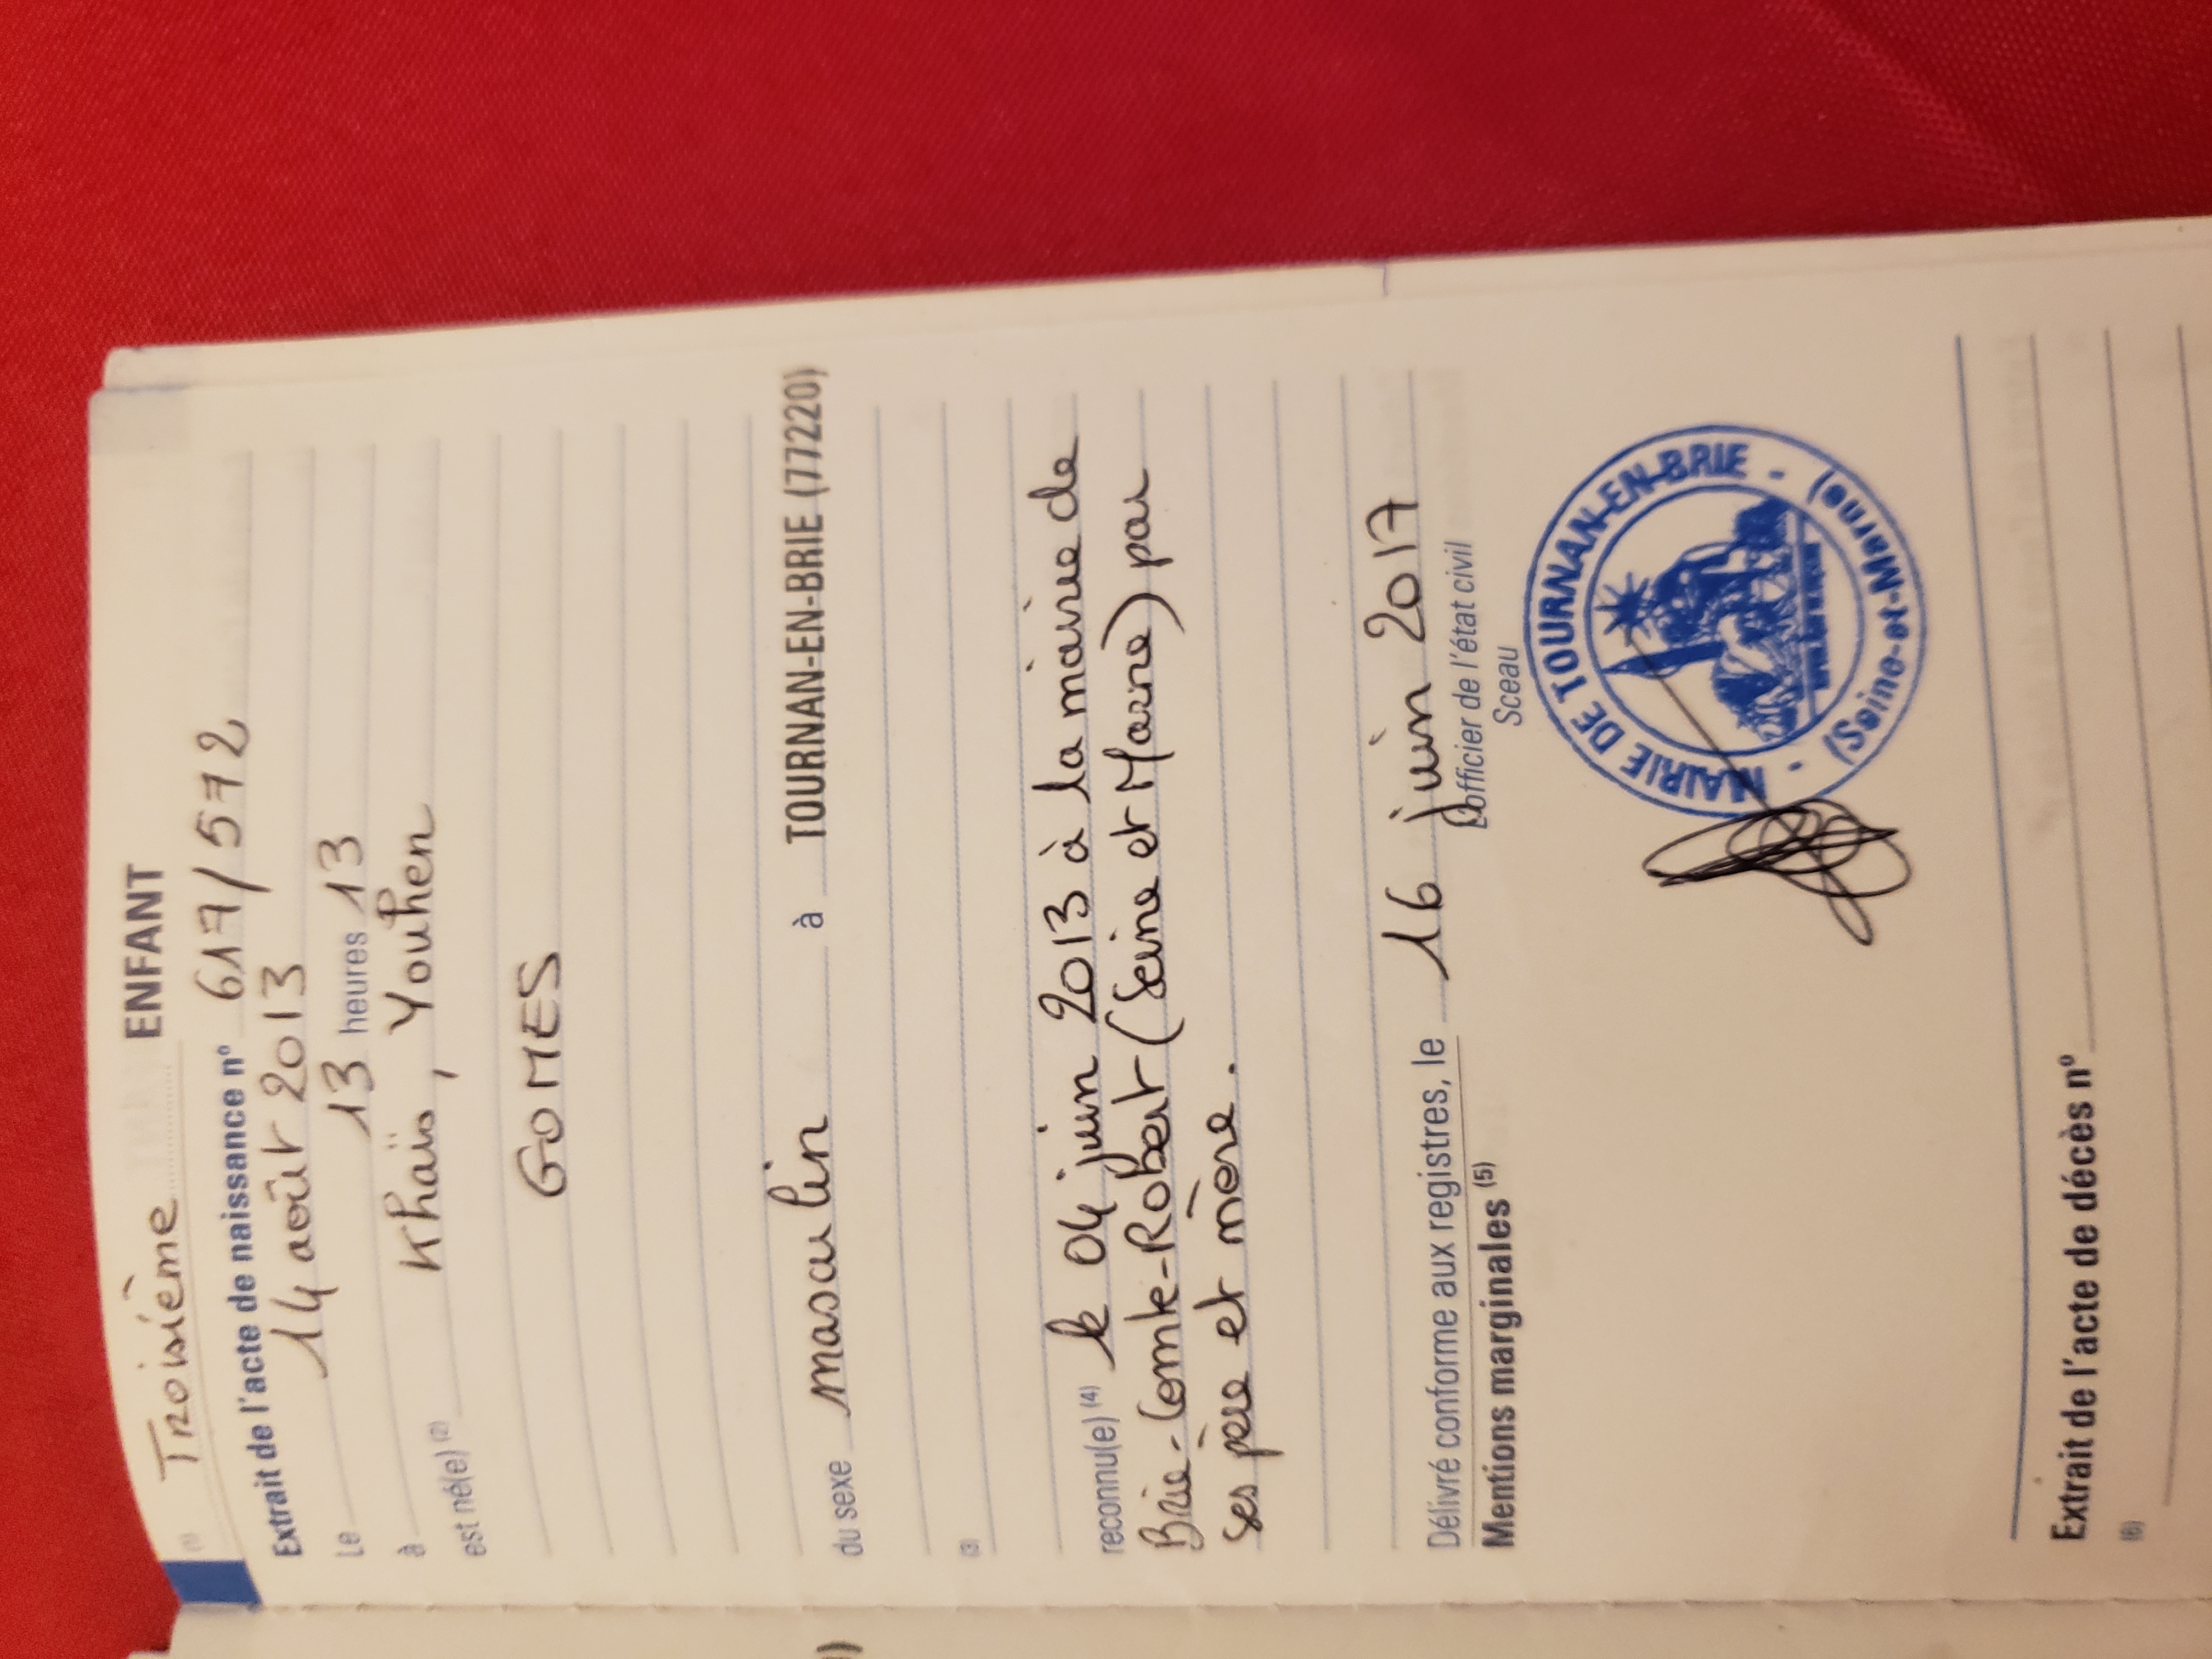 (1) Troisième ENFANT
Extrait de l'acte de naissance n° 617/572
Le 14 août 2013
à 13 heures 13
est né(e) (2) Khaïs, Youhen
GOMES
du sexe masculin à TOURNAN-EN-BRIE (77220)
(3)
reconnu(e) (4) le 04 juin 2013 à la mairie de
Brie-Comte-Robert (Seine et Marne) par
ses père et mère.
Délivré conforme aux registres, le 16 juin 2017
Mentions marginales (5)
L'officier de l'état civil
Sceau
MAIRIE DE TOURNAN-EN-BRIE -
(Seine-et-Marne)
Extrait de l'acte de décès n°
(6)